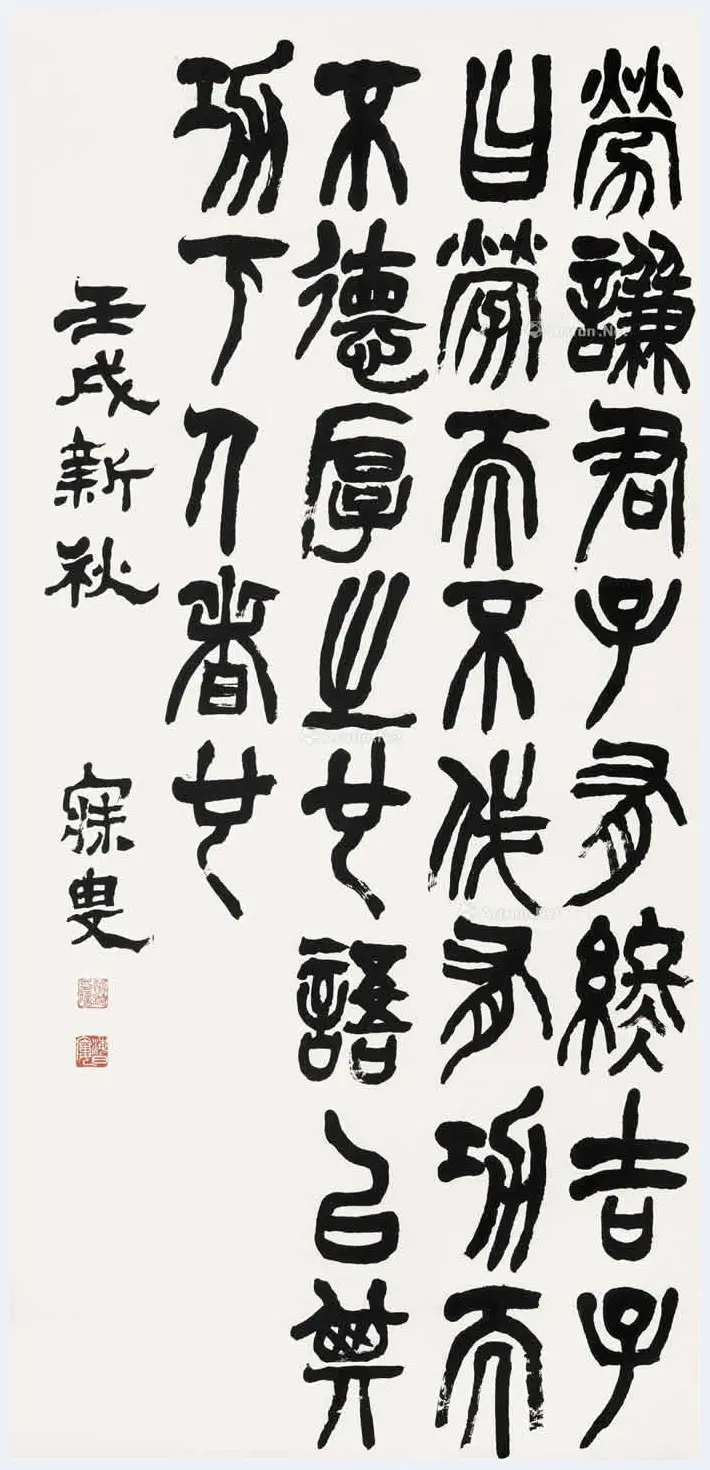 勞謙君子有終吉子
曰勞而不伐有功而
不德厚之也語以其
功下人者也
壬戌新秋 寐叟